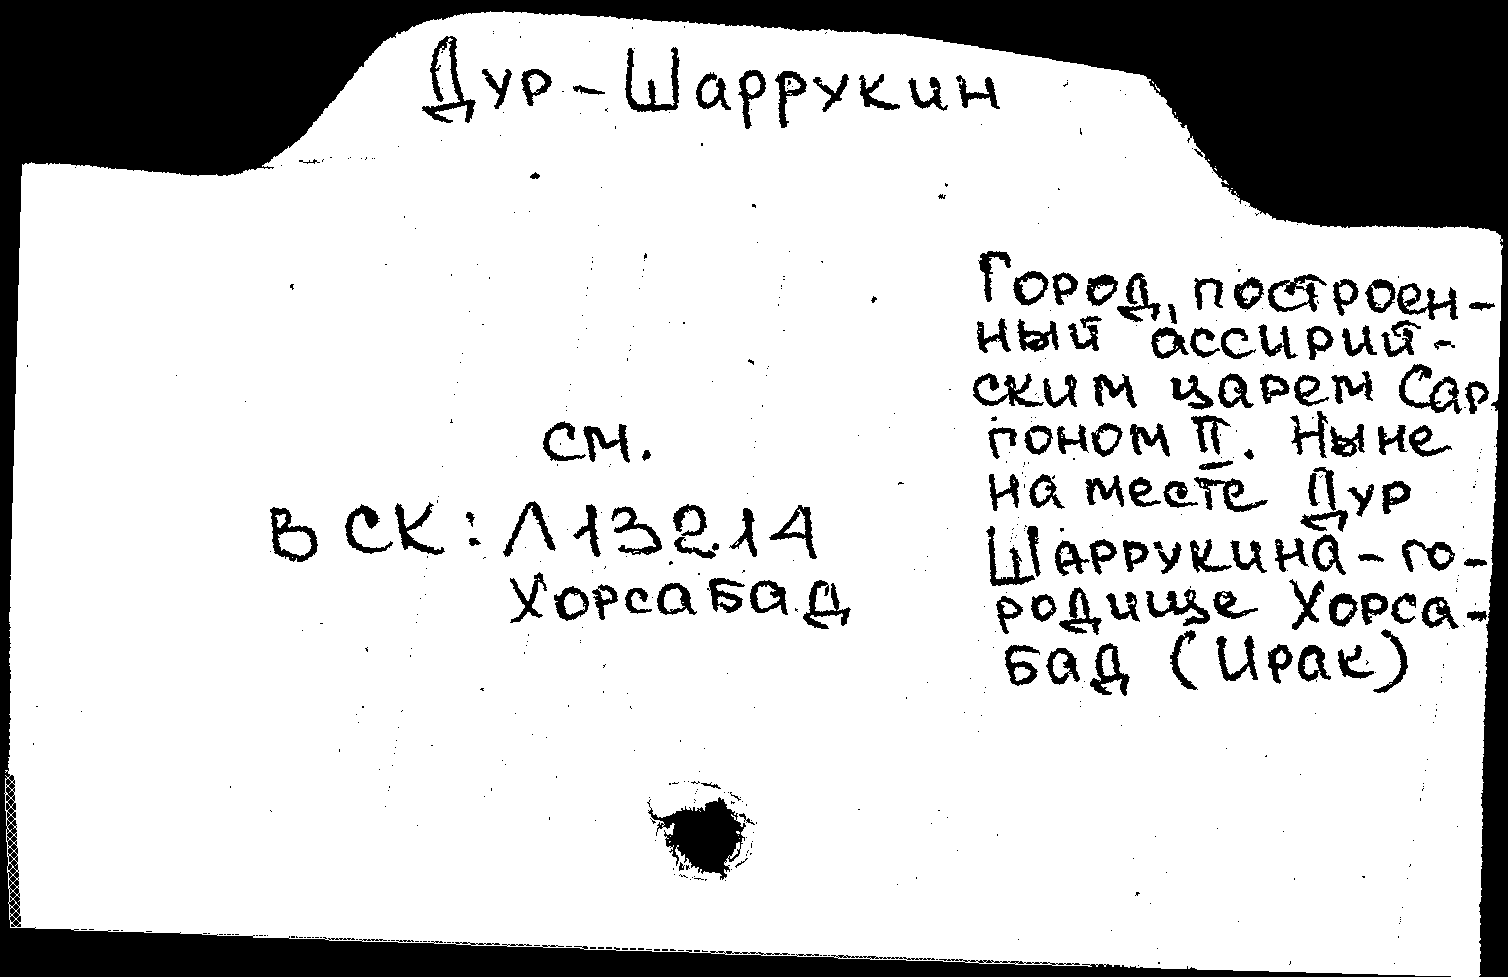 Дур-Шаррукин
см.
В СК: Л13214
Хорсабад
Город, построен-
ный ассирий-
ским царем Сар-
гоном II. Ныне
на месте Дур
Шаррукина-го-
родище Хорса-
бад (Ирак)